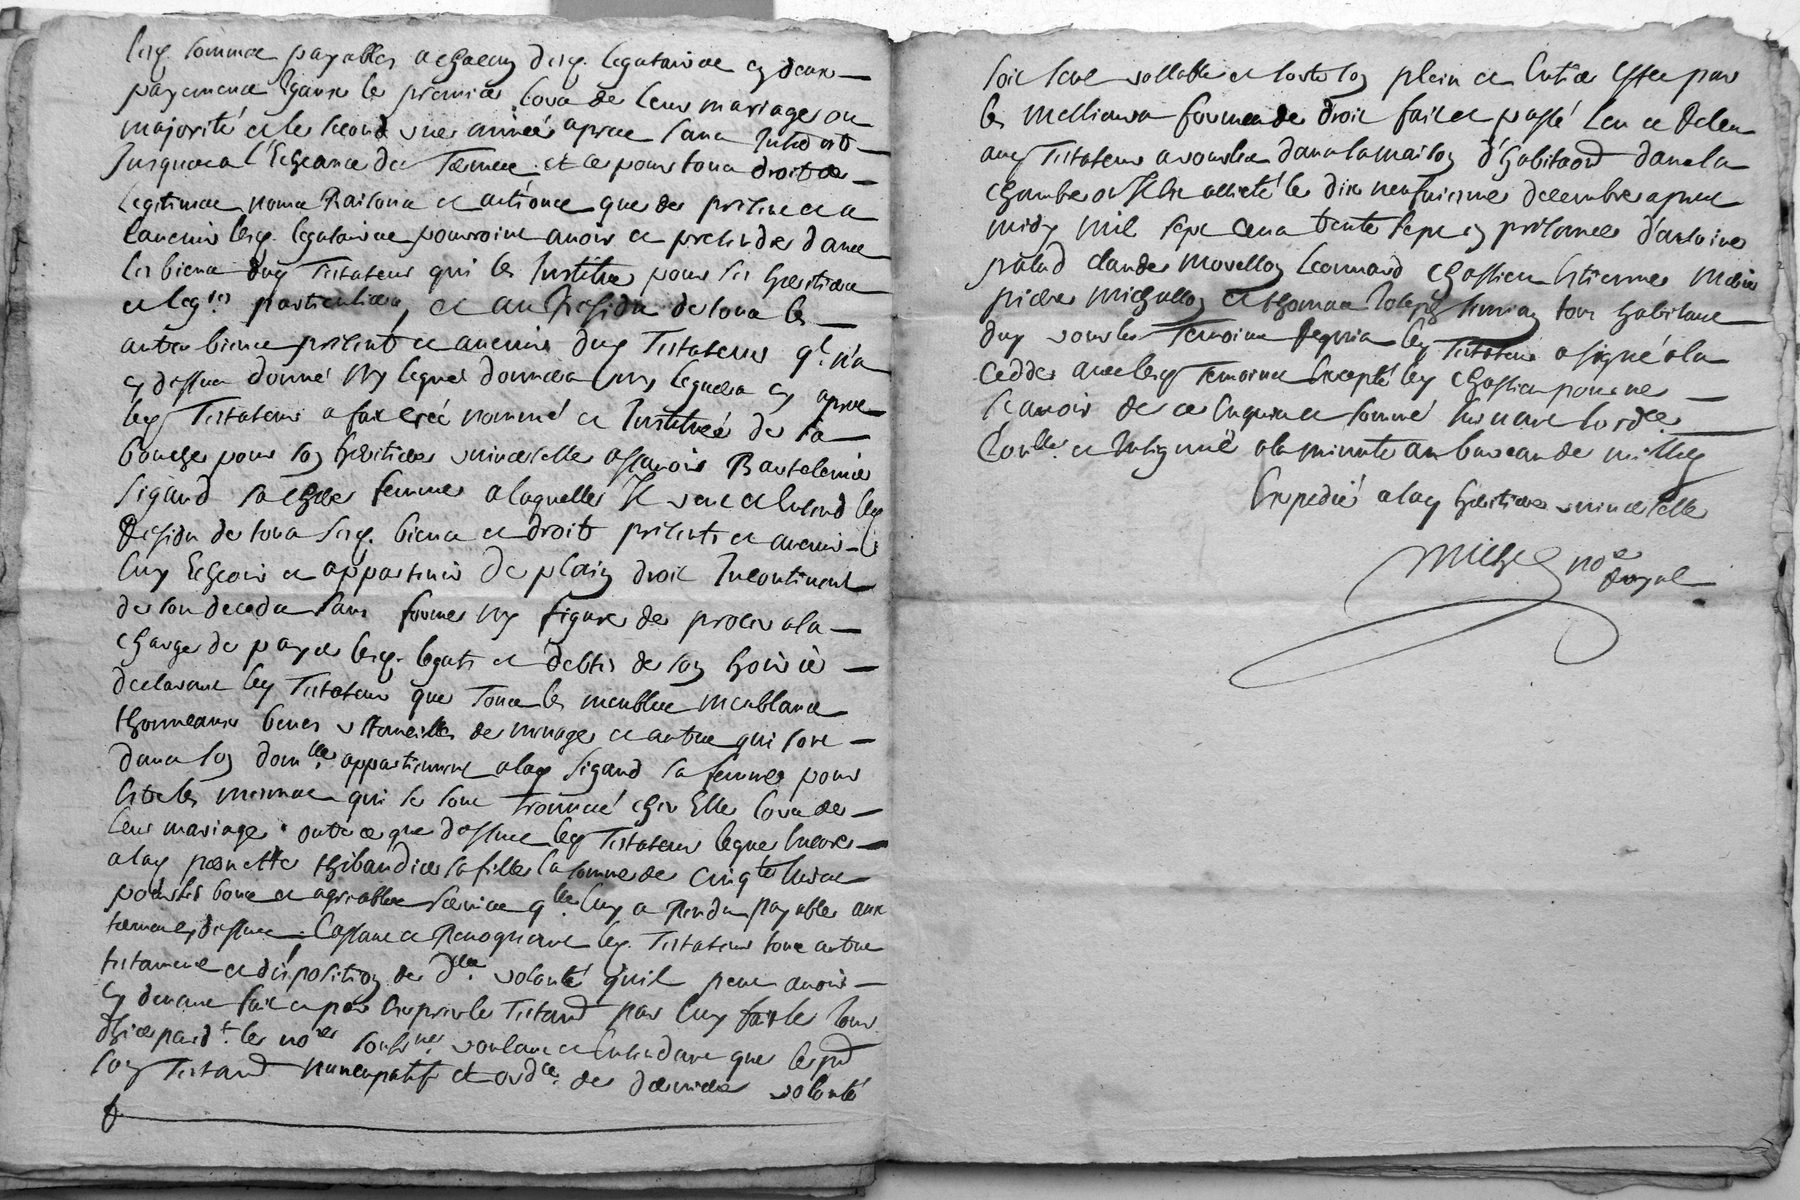 lesq. sommes payables a chacun desq. legataires en deux
payements Egaux le premier lors de leur mariage ou
majorité et le second une année apres sans Interest
Jusques a l'Echeance des Termes et ce pour tous droits de
Legitimes noms Raisons et actions que de present et a
l'avenir lesq. legataires pourroint avoir et pretendre dans
les biens dud Testateur qui les Institue pour ses heritiers
et leg.res particuliers, et au Residu de tous les
autres biens presents et avenir dud Testateur q.l n'a
cy dessus donné ny legué donnera ny leguera cy apres
led Testateur a fait créé nommé et Institué de sa
bouche pour son heritiere universelle assavoir Bartelemie
Sigaud sa chere femme a laquelle Il veut et entend led
Residu de tous sesq. biens et droits presents et avenir
luy Echeoir et appartenir de plain droit Incontinent
de son decedz sans forme ny figure de proces a la
charge de payer lesq. legats et debtes de son hoirie
declarant led Testateur que tous les meubles meublants
thonneaux bennes ustancilles de menage et autres qui sont
dans son dom.lle appartiennent a lad Sigaud sa femme pour
Estre les mesmes qui se sont trouvés chez Elle lors de
leur mariage. outre ce que dessus led Testateur legue Encore
a lad pernette thibaudier sa fille la somme de cinq.te livres
pour les bons et agreables services q.lle luy a Rendu payables aux
termes cy dessus. Cassant et Revoquant led. Testateur tous autres
testaments et disposition de d.re volonté qu'il peut avoir
cy devant fait et par Expres le Testament par luy fait le Jour
d'hier pard.t les no.res soub.nés voulant et Entendant que le pnt
son Testament nuncupatif et ord.ce de derniere volonté
soit seul vallable et sorte son plein et Entier Effet par
les meilleures formes de droit fait et passé leu et Releu
aud Testateur a vourles dans la maison d'habitaon dans la
chambre ou Il est alicté le dix neufvieme decembre apres
midy mil sept cens trente sept en presence d'antoine
palud claude morellon Leonnard chastien Estienne
pierre michallon et thomas Joseph tous habitans
dud vourles Temoins Requis led Testateur a signé a la
cedde avec lesd Temoins Excepté led chastien pour ne
scavoir de ce Enquis et sommé suivant l'ord.ce
Con.llé et Insigniié a la minute au bureau de millery
Expedié a lad heritiere universelle
Michel no.re Royal